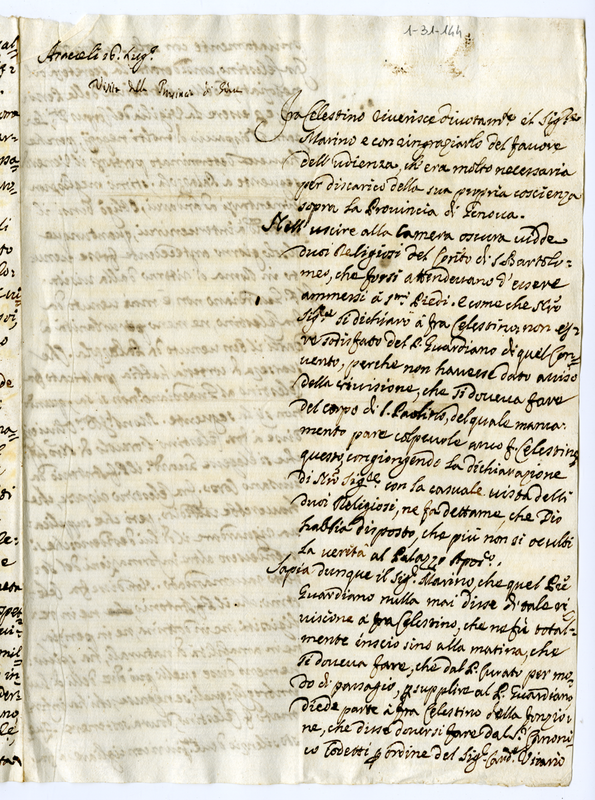 1-31-144
Araceli 16. lug.º
Visita della Provincia di
Fra Celestino riverisce divotam.te il Sig.re
Marino e con ringraziarlo del favore
dell'udienza, ch'era molto necessaria
per discarico della sua propria coscienza
sopra la Provincia di Genova.
Nell'uscire alla Camera oscura vidde
duoi Religiosi del Conto di S. Bartolo-
meo, che forsi attendevano d'essere
ammessi a S.mi Piedi. e come che Nrõ
Sig.re si dichiarò à fra Celestino, non ess.
re sodisfato del P. Guardiano di quel Con-
vento, perche non havesse dato avviso
della rivisione, che si doveva fare
del corpo di S. Paolino, del quale manca-
mento pare colpevole anco f. Celestino
questo, congiongendo la dichiarazione
di Nrõ Sig.re con la casuale vista delli
duoi Religiosi, ne fa dettame, che Dio
habbia disposto, che più non si occulti
la verita al Palazzo Apco.
Sapia dunque il Sig. Marino, che quel Pre
Guardiano nulla mai disse di tale ri-
visione à fra Celestino, che ne fù total-
mente inscio sino alla matina, che
si doveva fare, che dal P. Curato per mo-
do di passagio, e supplire al P. Guardiano
diede parte à fra Celestino della fonzio-
ne, che disse doversi fare dal S. Canoni-
co Todetti p ordine del Sig. Card. Vicario